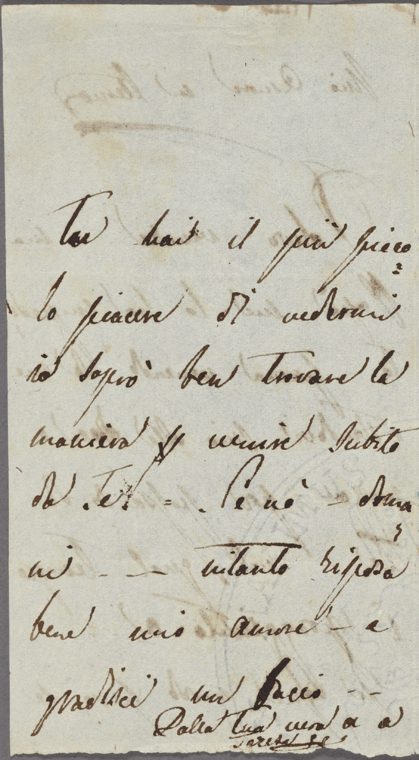 Tu hai il più picco=
lo piacere di vedermi
io saprò ben trovare la
maniera p venire subito
da Te! = Se nò – doma
ni - — intanto riposa
bene mio amore – e
gradisci un bacio --
Dalla tua vera a a